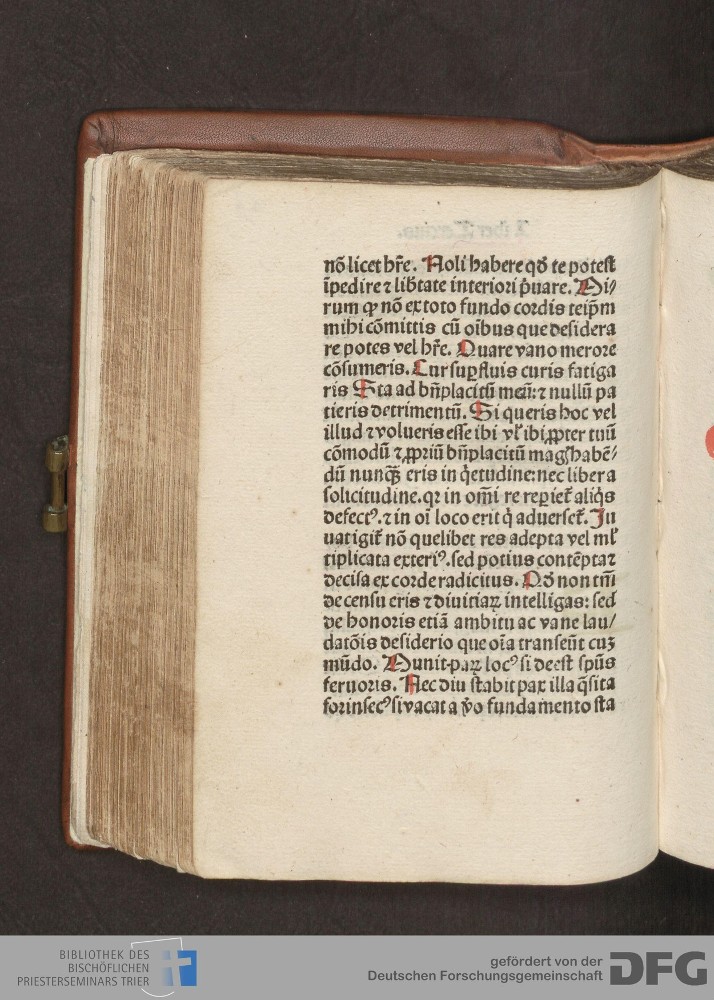 nõ licet hr̃e. Noli habere qđ te potest
ĩpedire ⁊ lib̃tate interiori p̱uare. Mi⸗
rum ꝙ nõ ex toto fundo cordis teip̃m
mihi cõmittis cũ oĩbus que desidera
re potes vel hr̃e. Quare vano merore
cõsumeris. Cur suꝑfluis curis fatiga
ris Sta ad bñplacitũ meũ: ⁊ nullũ pa
tieris detrimentũ. Si queris hoc vel
illud ⁊ volueris esse ibi vl̃ ibi ꝓpter tuũ
cõmodũ ⁊ ꝓpriũ bñplacitũ mag habẽ⸗
dũ nunqꝫ eris in q̇etudine: nec liber a
solicitudine. qꝛ in om̃i re repiet̃ aliq̇s
defectꝰ. ⁊ in oĩ loco erit q̇ adverset̃. Ju
uat igit̃ nõ quelibet res adepta vel ml̃
tiplicata exteriꝰ. sed potius contẽpta ⁊
decisa ex corde radicitus. Qđ non tm̃
de censu eris ⁊ diuitiaꝝ intelligas: sed
de honoris etiã ambitu ac vane lau⸗
datõis desiderio que oĩa transeũt cuꝫ
mũdo. Munit paꝝ locꝰ si deest spũs
feruoris. Nec diu stabit pax illa q̃sita
forinsecꝰ si vacat a ṽo fundamento sta
Liber Tercius.
BIBLIOTHEK DES
BISCHÖFLICHEN
PRIESTERSEMINARS TRIER
gefördert von der
Deutschen Forschungsgemeinschaft DFG